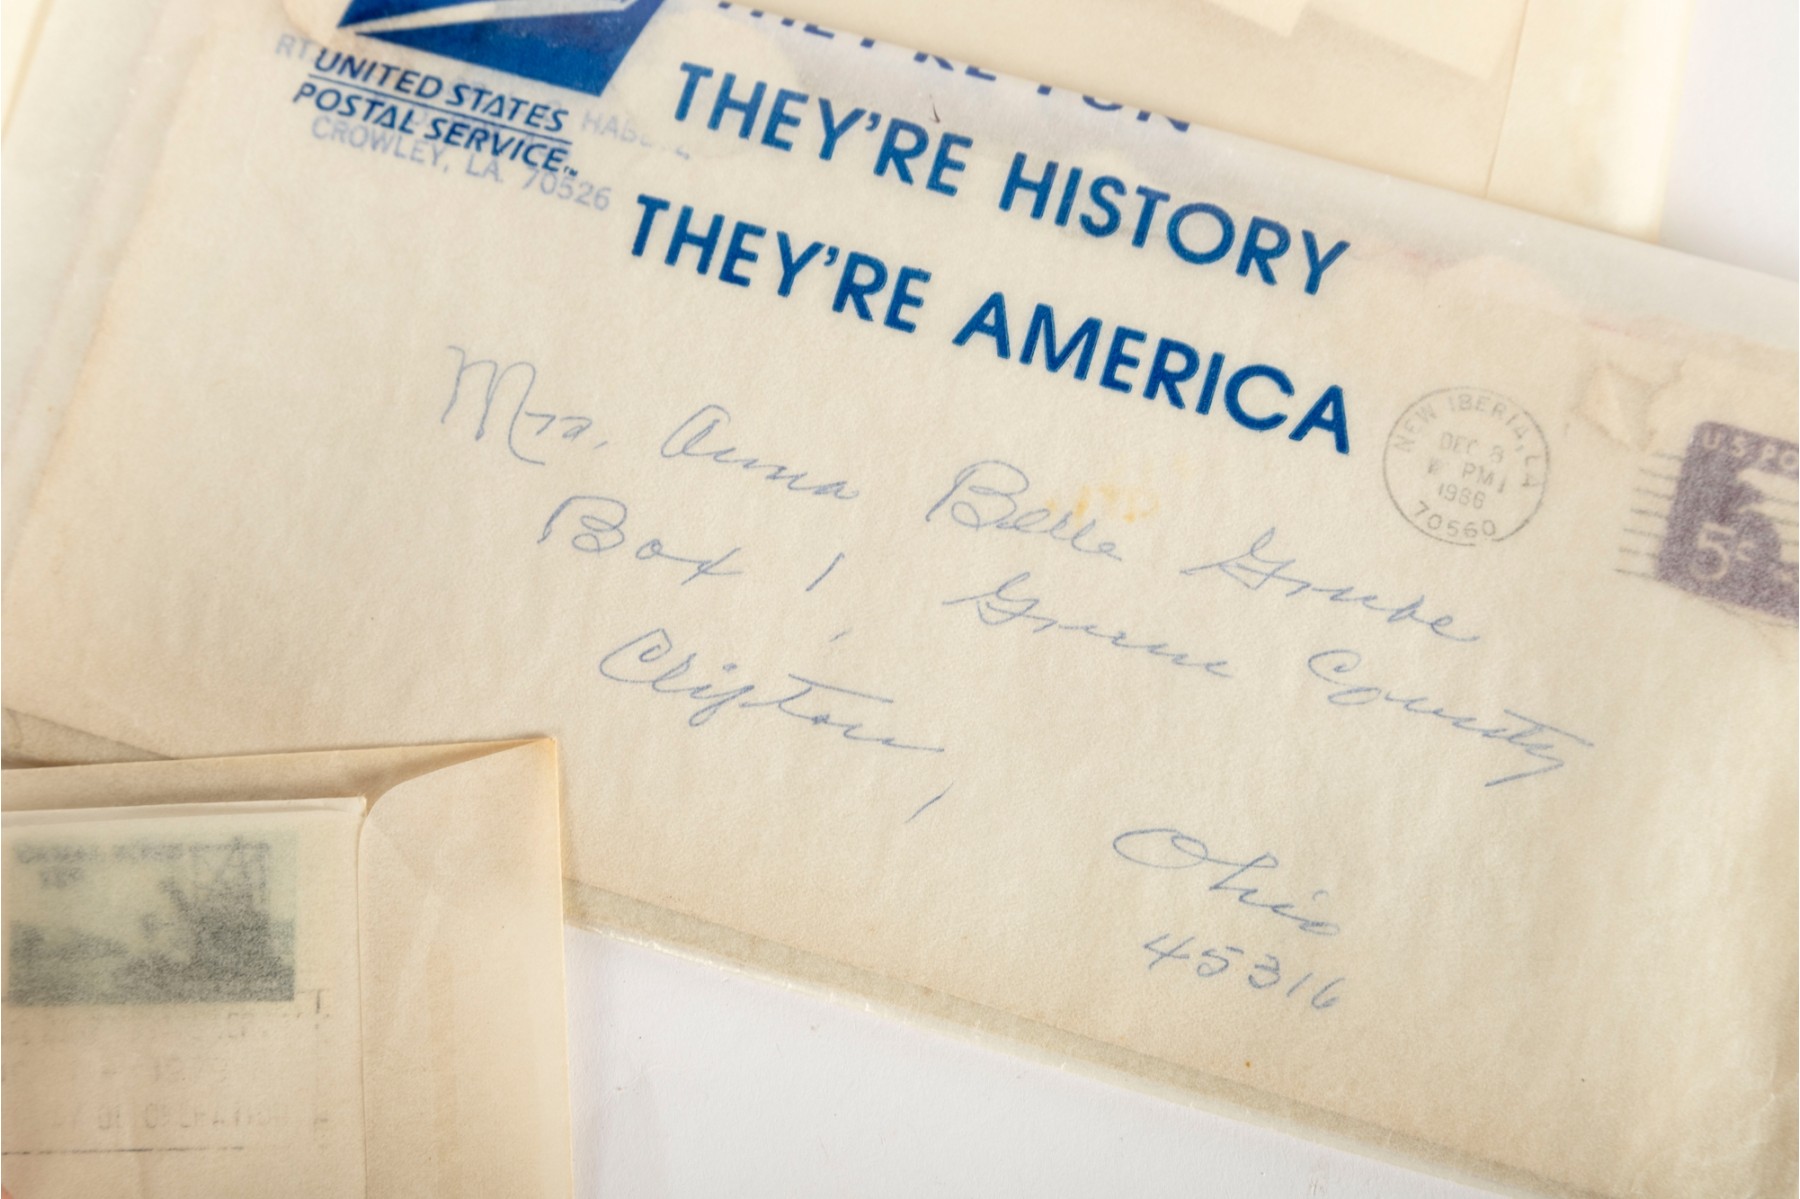 THEY'RE FUN
THEY'RE HISTORY
THEY'RE AMERICA
UNITED STATES
POSTAL SERVICE™
RT
CROWLEY, LA. 70526
NEW IBERIA, LA
DEC 8
PM
1966
70560
U.S. PO
5c
Mrs. Anna Belle Grube
Box 1, Greene County
Clifton,
Ohio
45316